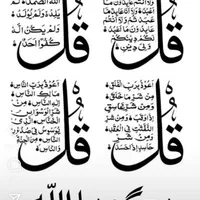 وَلَا أَنْتُمْ عَابِدُونَ مَا
أَعْبُدُ وَلَا أَنَا عَابِدٌ مَا
عَبَدْتُمْ وَلَا أَنْتُمْ
عَابِدُونَ مَا أَعْبُدُ
لَكُمْ دِينُكُمْ
وَلِيَ دِينِ
قُلْ
اللَّهُ الصَّمَدُ لَمْ
يَلِدْ وَلَمْ يُولَدْ
وَلَمْ يَكُنْ لَهُ
كُفُوًا أَحَدٌ
قُلْ
أَعُوذُ بِرَبِّ الْفَلَقِ
مِنْ شَرِّ مَا خَلَقَ
وَمِنْ شَرِّ غَاسِقٍ
إِذَا وَقَبَ وَمِنْ شَرِّ
النَّفَّاثَاتِ فِي الْعُقَدِ
وَمِنْ شَرِّ
حَاسِدٍ إِذَا حَسَدَ
قُلْ
أَعُوذُ بِرَبِّ النَّاسِ
مَلِكِ النَّاسِ
إِلَهِ النَّاسِ مِنْ
شَرِّ الْوَسْوَاسِ
الْخَنَّاسِ الَّذِي
يُوَسْوِسُ فِي صُدُورِ
النَّاسِ مِنَ
الْجِنَّةِ وَالنَّاسِ
قُلْ
الله